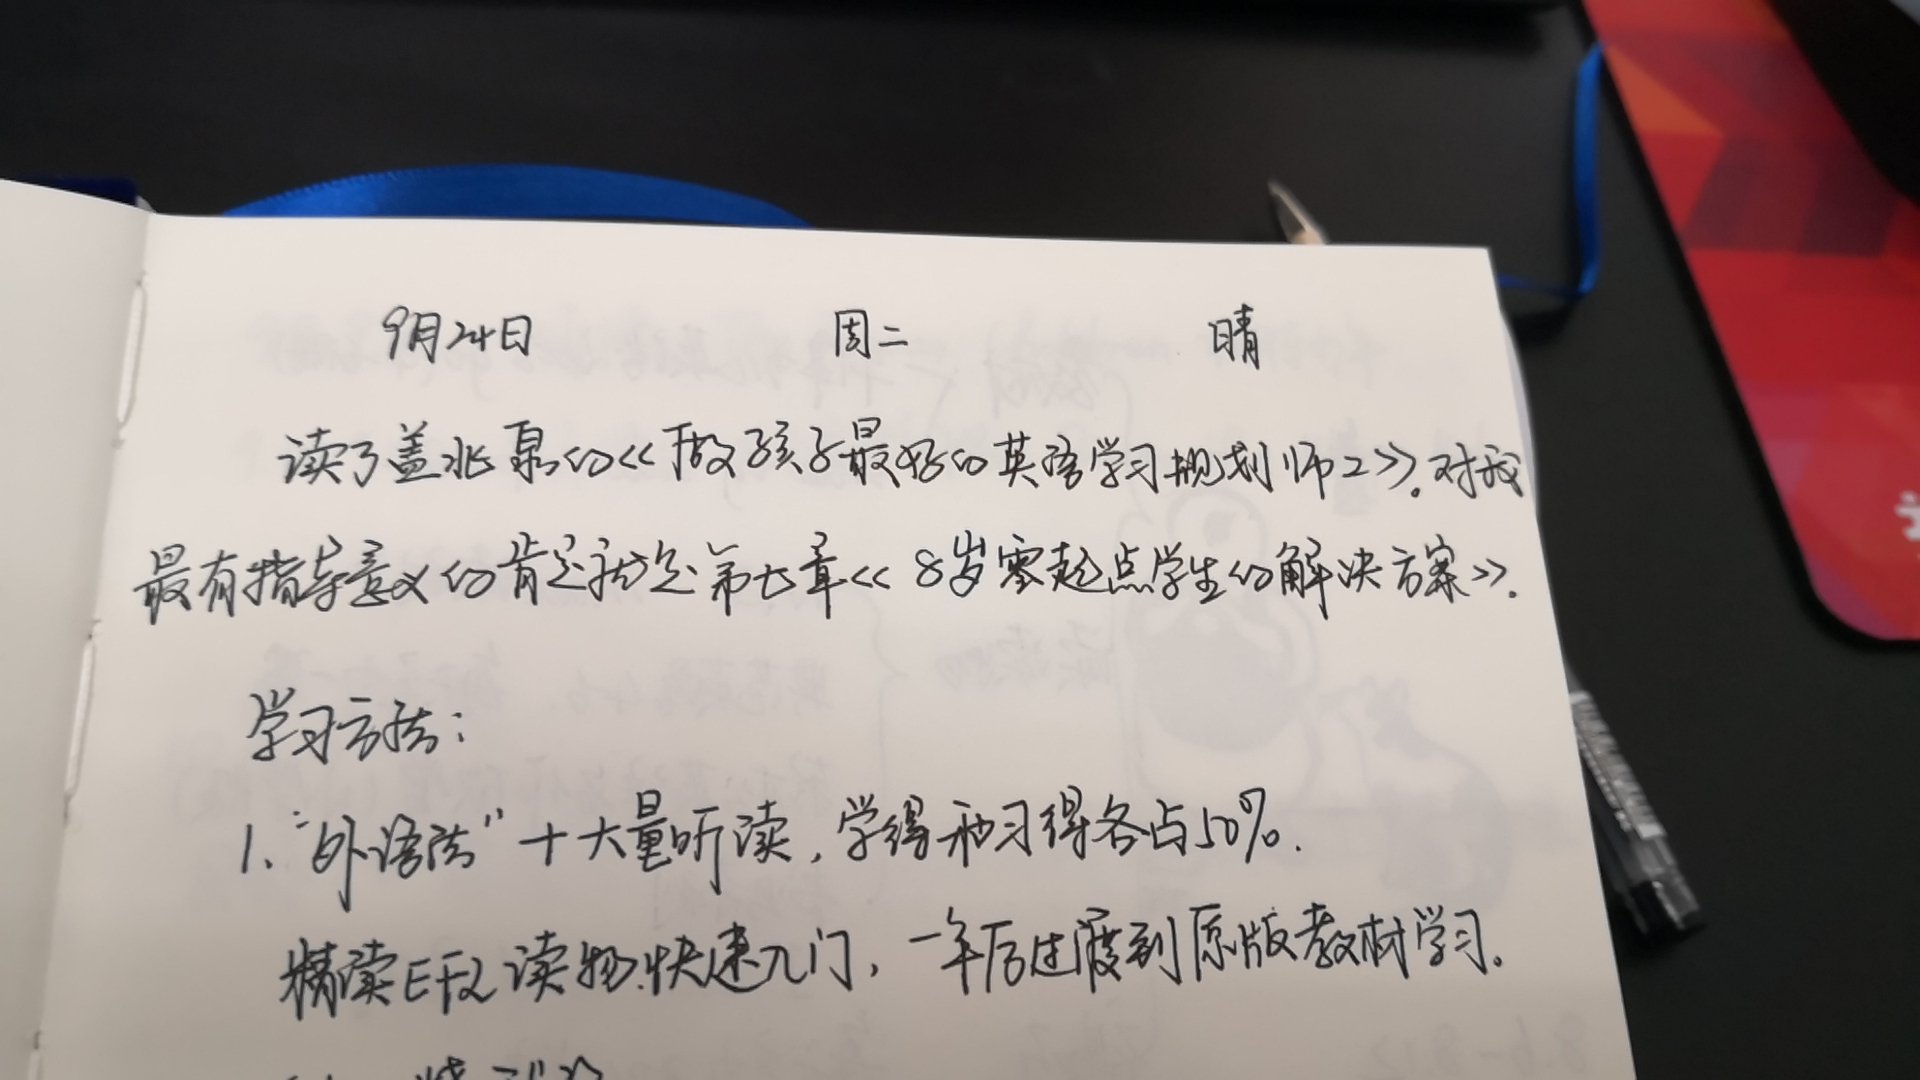 9月24日 周二 晴
读了盖兆泉的《做孩子最好的英语学习规划师2》。对我
最有指导意义的肯定就是第七章《8岁零起点学生的解决方案》.
学习方法：
1、“外语法”+大量听读，学得和习得各占50%.
精读EFL读物快速入门，一年后过渡到原版教材学习。